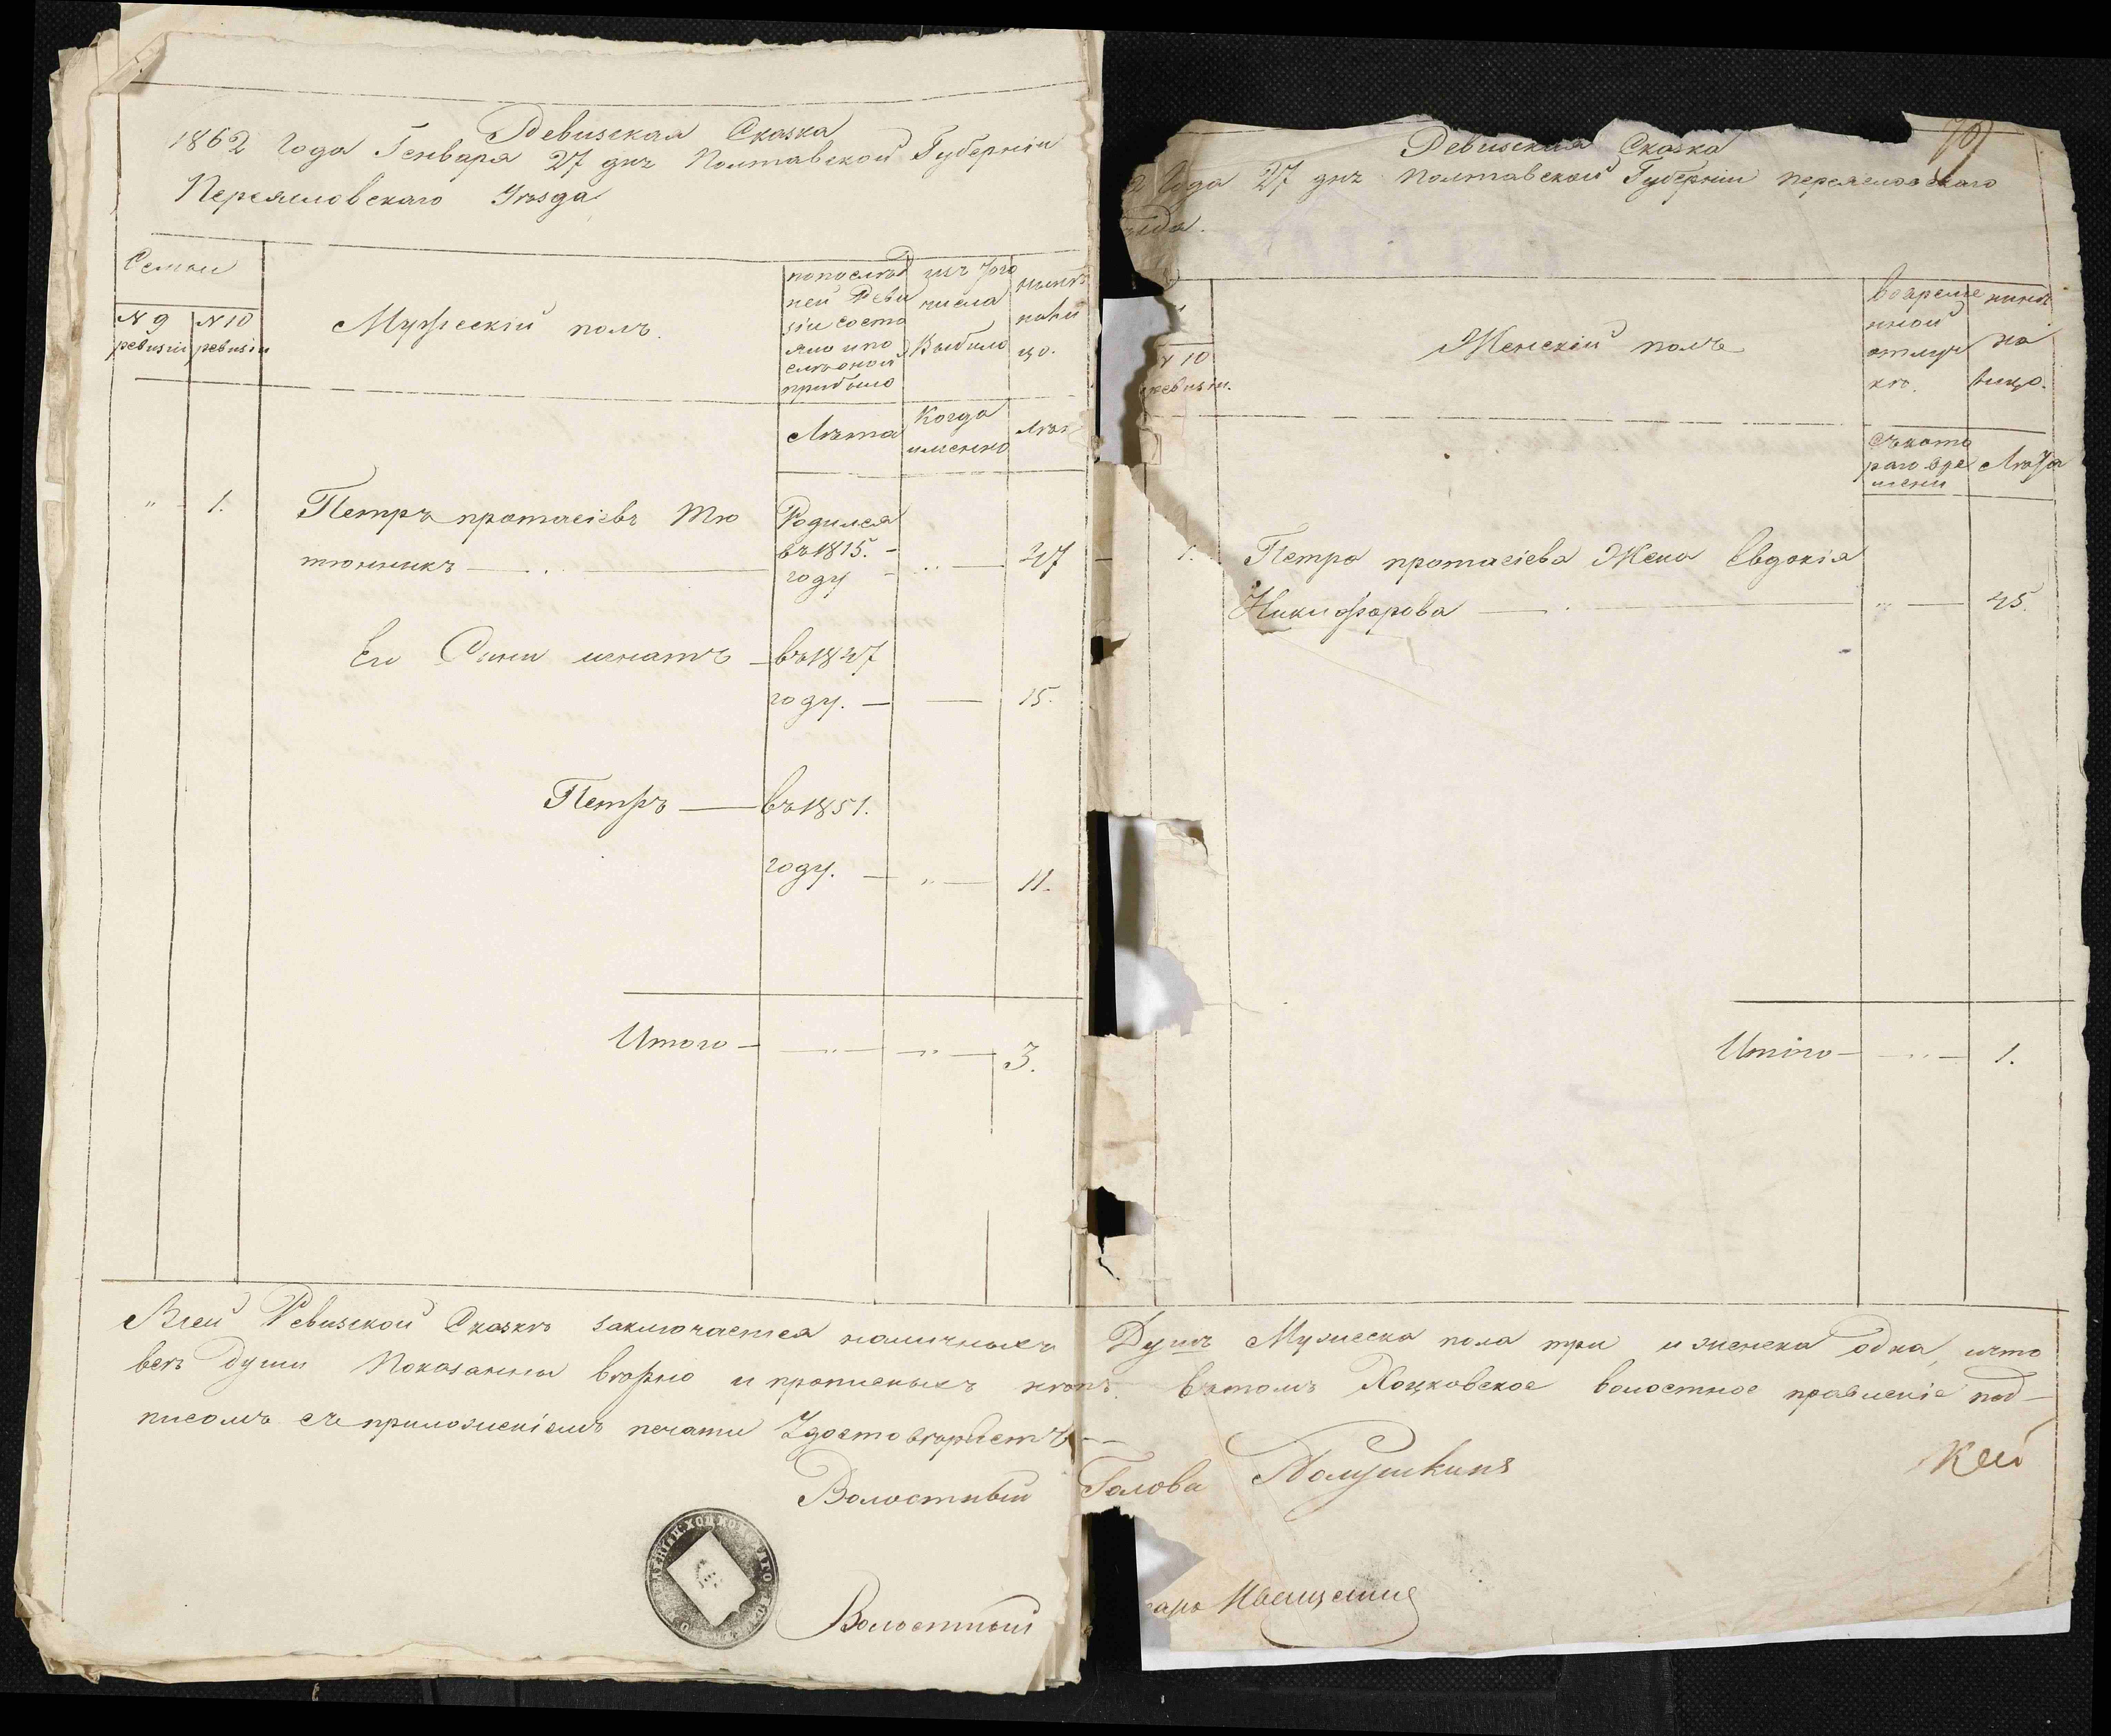 Ревизская Сказка
1862 Года Генваря 27 дня Полтавской Губерніи
Переяславскаго Уѣзда
Семьи
№ 9 ревизіи
№ 10 ревизіи
Мужескій полъ.
по послѣд
ней Реви
зіи состо
яло и по
слѣ оной
прибыло
изъ того
числа
Выбыло
нынѣ
на
цо.
Лѣта
Когда
именно
Лѣт
" 1. Петръ протасіевъ Тю
тюнникъ
Родился
въ 1815.
году
47
Его Сыни игнатъ въ 1847
году. 15.
Петръ въ 1851.
году. 11.
Итого 3.
Ревизская Сказка
Года 27 дня Полтавской Губерніи переясловскаго
ѣзда.
№ 10
ревизіи.
Женскій полъ
во време
нной
отлуч
кѣ.
нынѣ
на
лицо.
Съ кото
раго вре
мени
Лѣта
1. Петра протасіева Жена Евдокія
Никифорова 45.
Итого 1.
Всей Ревизской Сказкѣ заключается наличныхъ Душъ Мужеска пола три и женска одна, что
всѣ души Показанны вѣрно и прописныхъ нѣтъ. Въ томъ Хоцковское волостное правленіе под-
писомъ съ приложеніемъ печати Удостовѣряетъ
Волостный Голова
Волостный